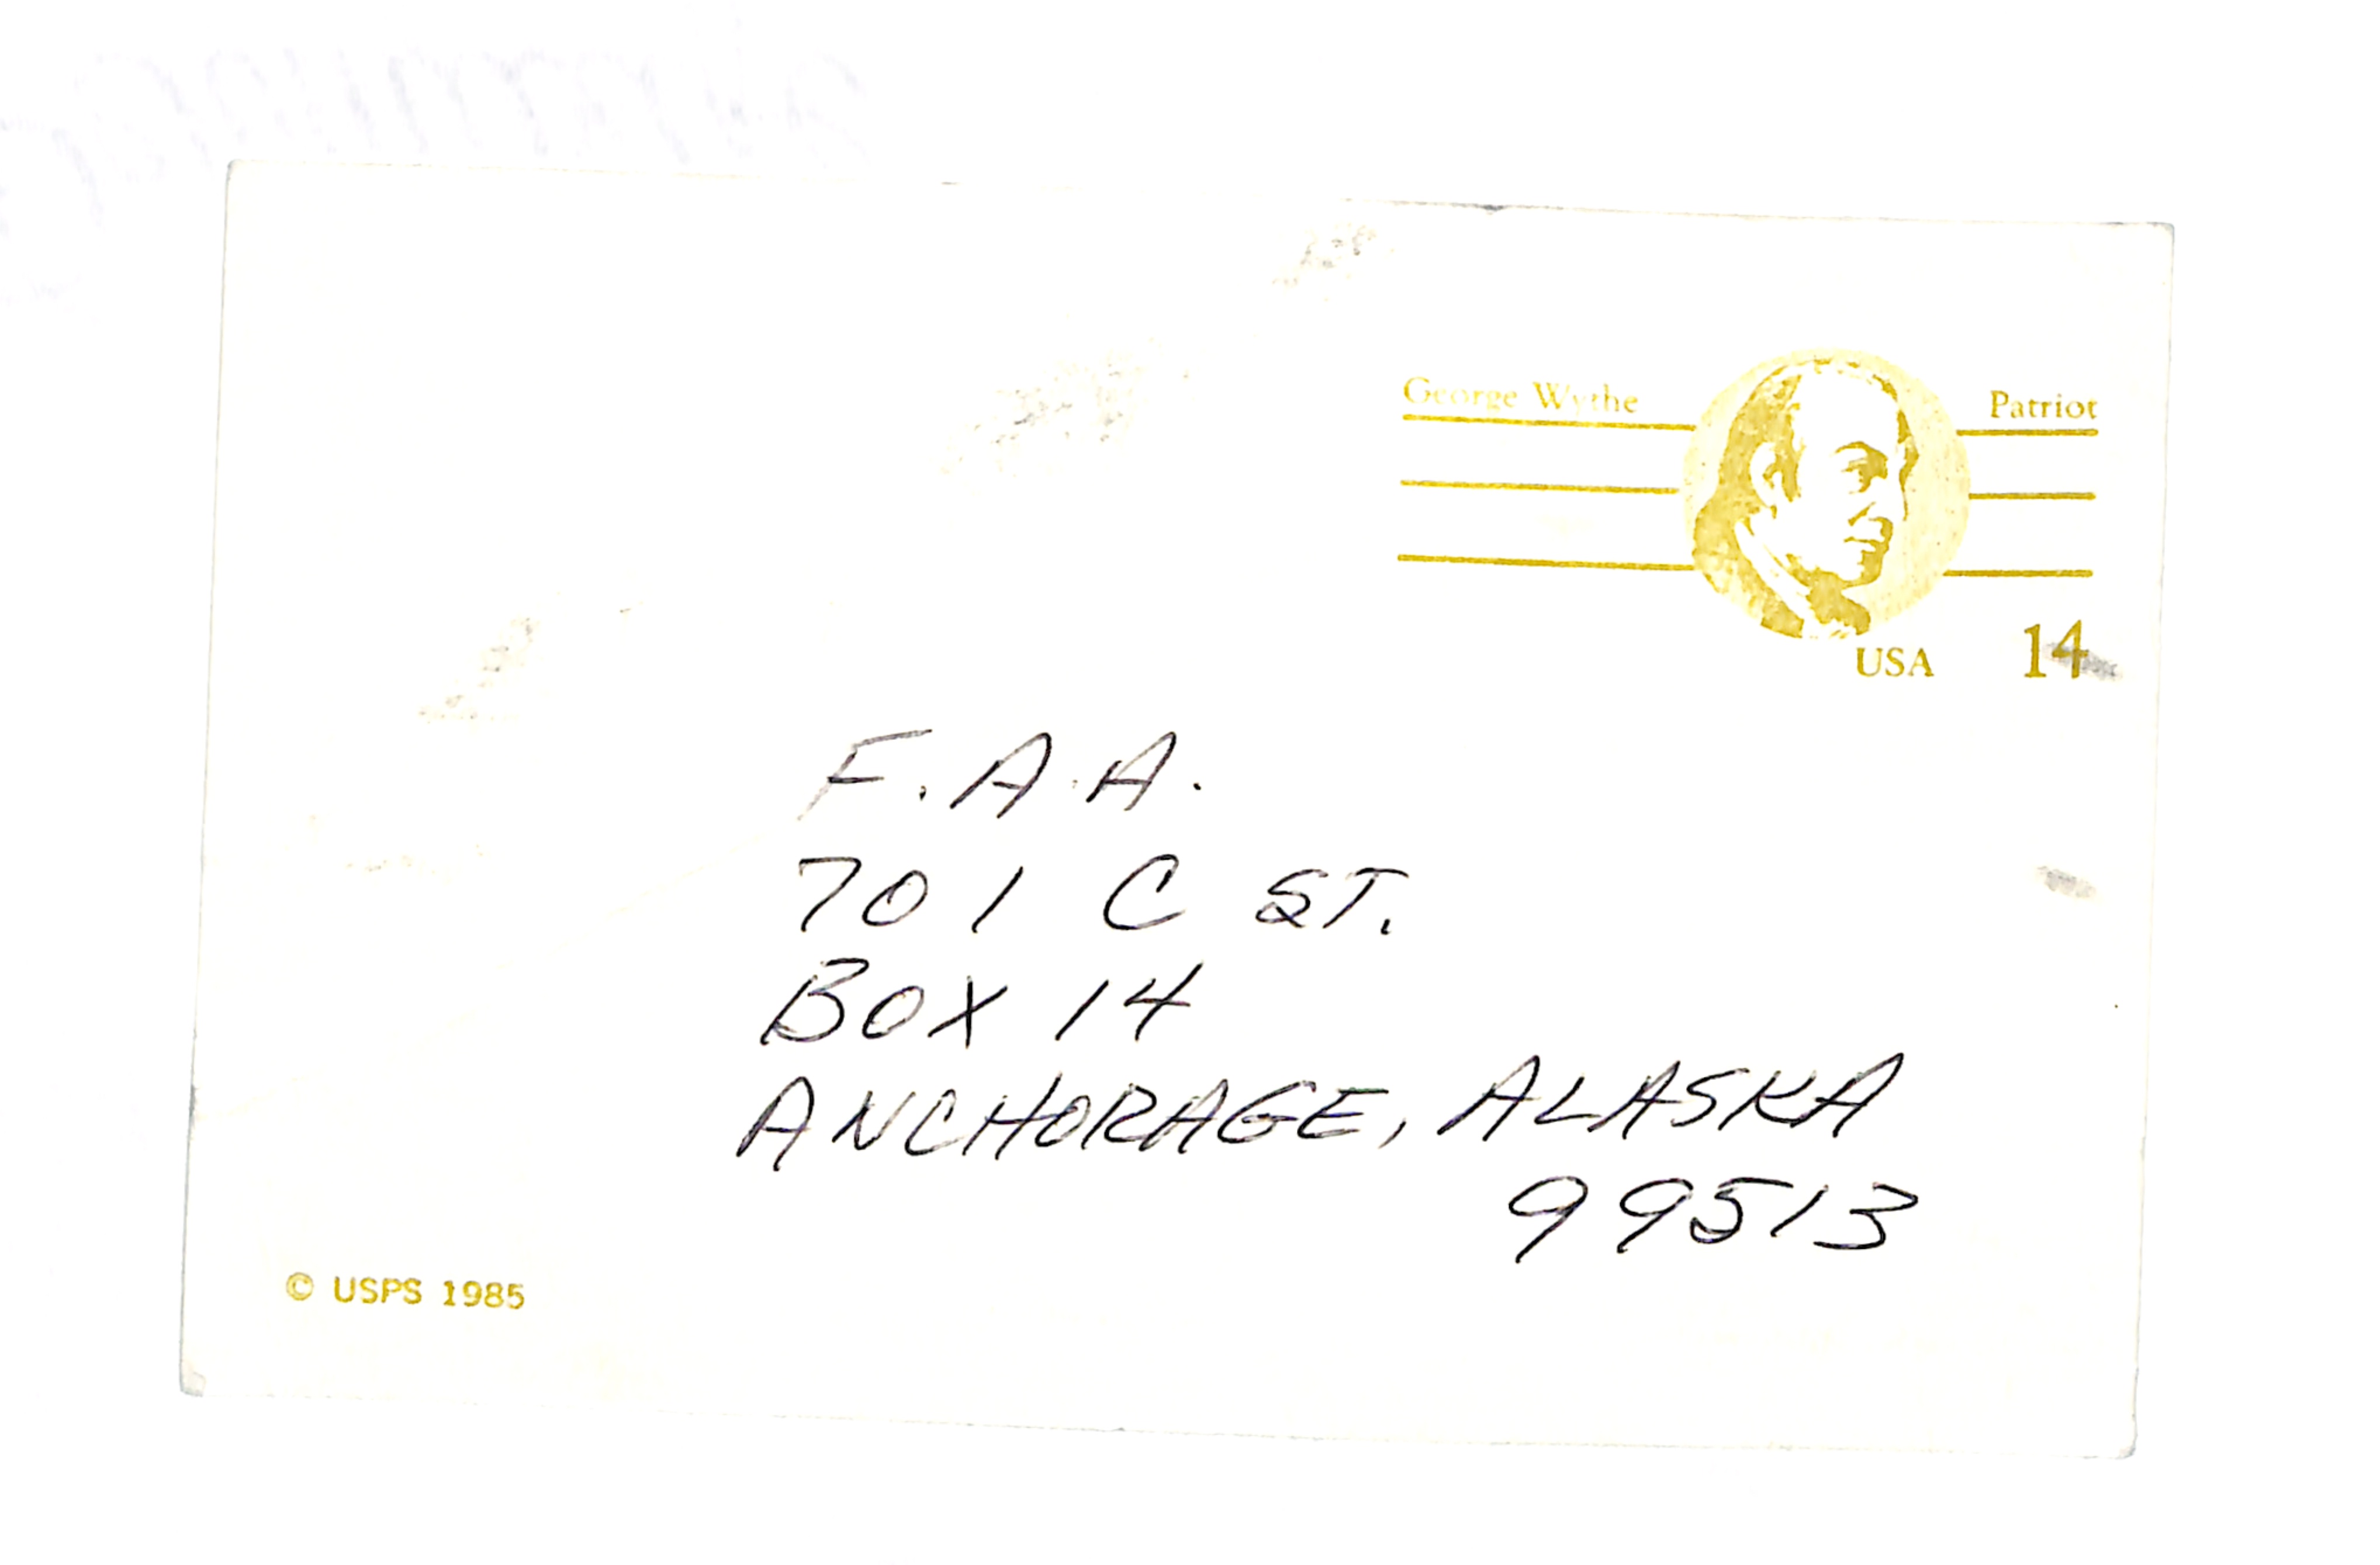 George Wythe Patriot
USA 14
F.A.A.
701 C ST.
BOX 14
ANCHORAGE, ALASKA
99513
© USPS 1985